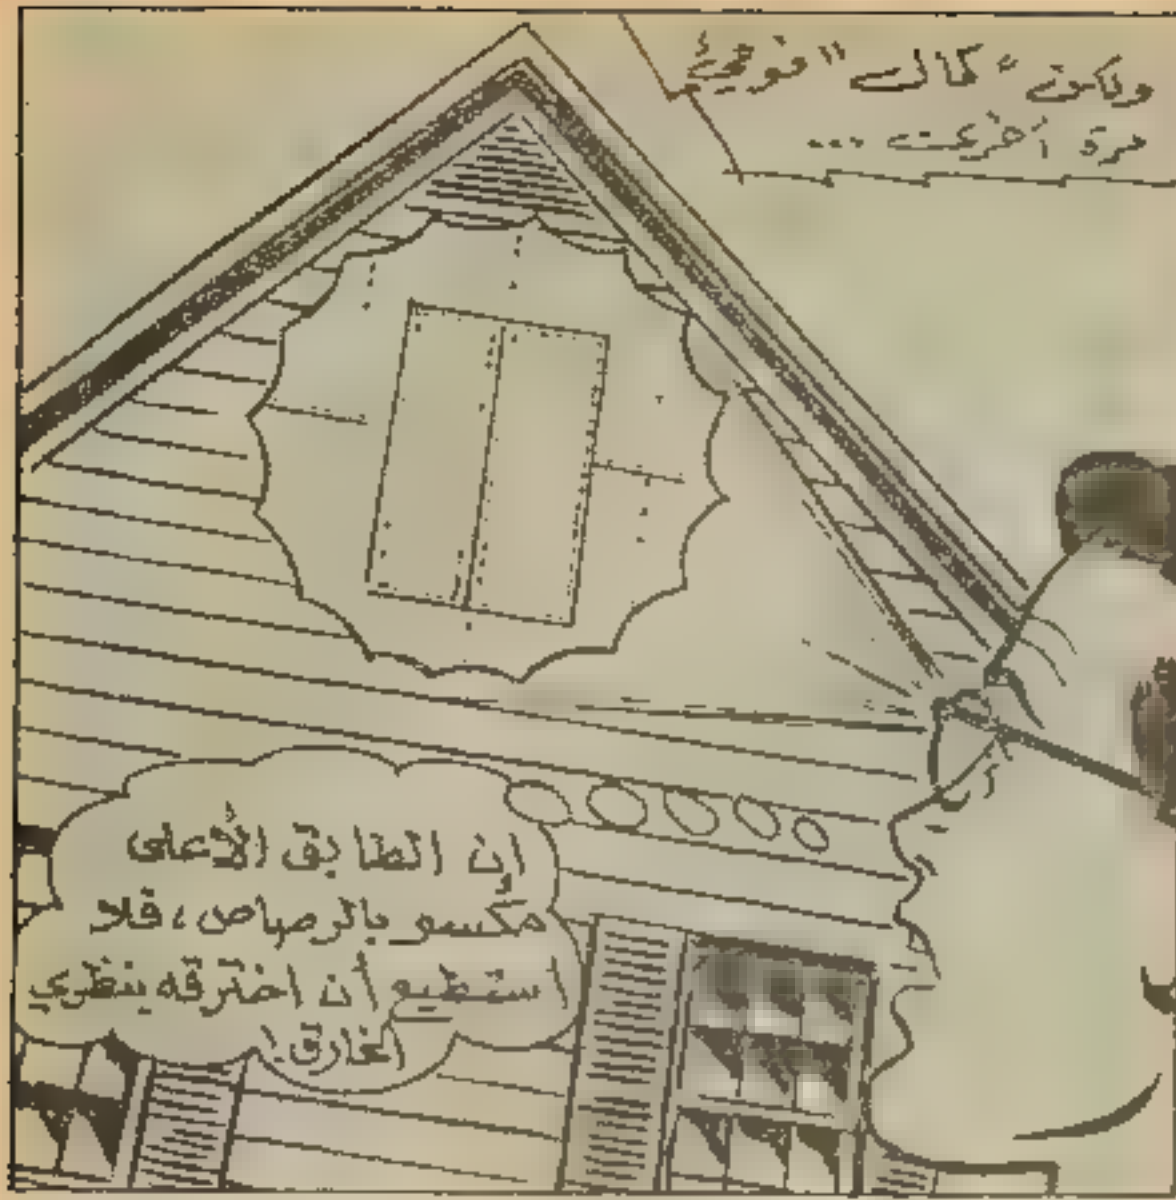 ولكن "كال" فوجئ
مرة أخرى ...
إن الطابق الأعلى
مكسو بالرصاص، فلا
أستطيع أن أخترقه بنظري
الخارق!